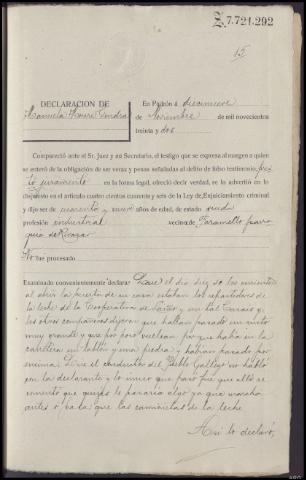 7.721.292
15
DECLARACION DE
Manuela
En Padrón á diecinueve
de Noviembre de mil novecientos
treinta y dos
Compareció ante el Sr. Juez y mi Secretario, el testigo que se expresa al margen a quien
se enteró de la obligación de ser veraz y penas señaladas al delito de falso testimonio, pres
tó juramento en la forma legal, ofreció decir verdad, se le advirtió en lo
dispuesto en el artículo cuatrocientos cuarenta y seis de la Ley de Enjuiciamiento criminal
y dijo ser de cuarenta y años de edad, de estado viuda
profesión industrial vecina de Faramello parro
quia de
No fue procesado
Examinado convenientemente declara: Que el día diez de los corrientes
al abrir la puerta de su casa estaban los repartidores de
la leche de la Cooperativa de y un tal y
los otros compañeros dijeron que habían pasado un susto
muy grande y que por poco vuelcan por que había en la
carretera un tablón y una piedra y habían pasado por
encima. Que el conductor del Pueblo Gallego no habló
con la declarante y lo único que paró fue que alto se
comentó que quizás le pararía algo ya que marcha
antes o a la que las camionetas de la leche
Así lo declaró,